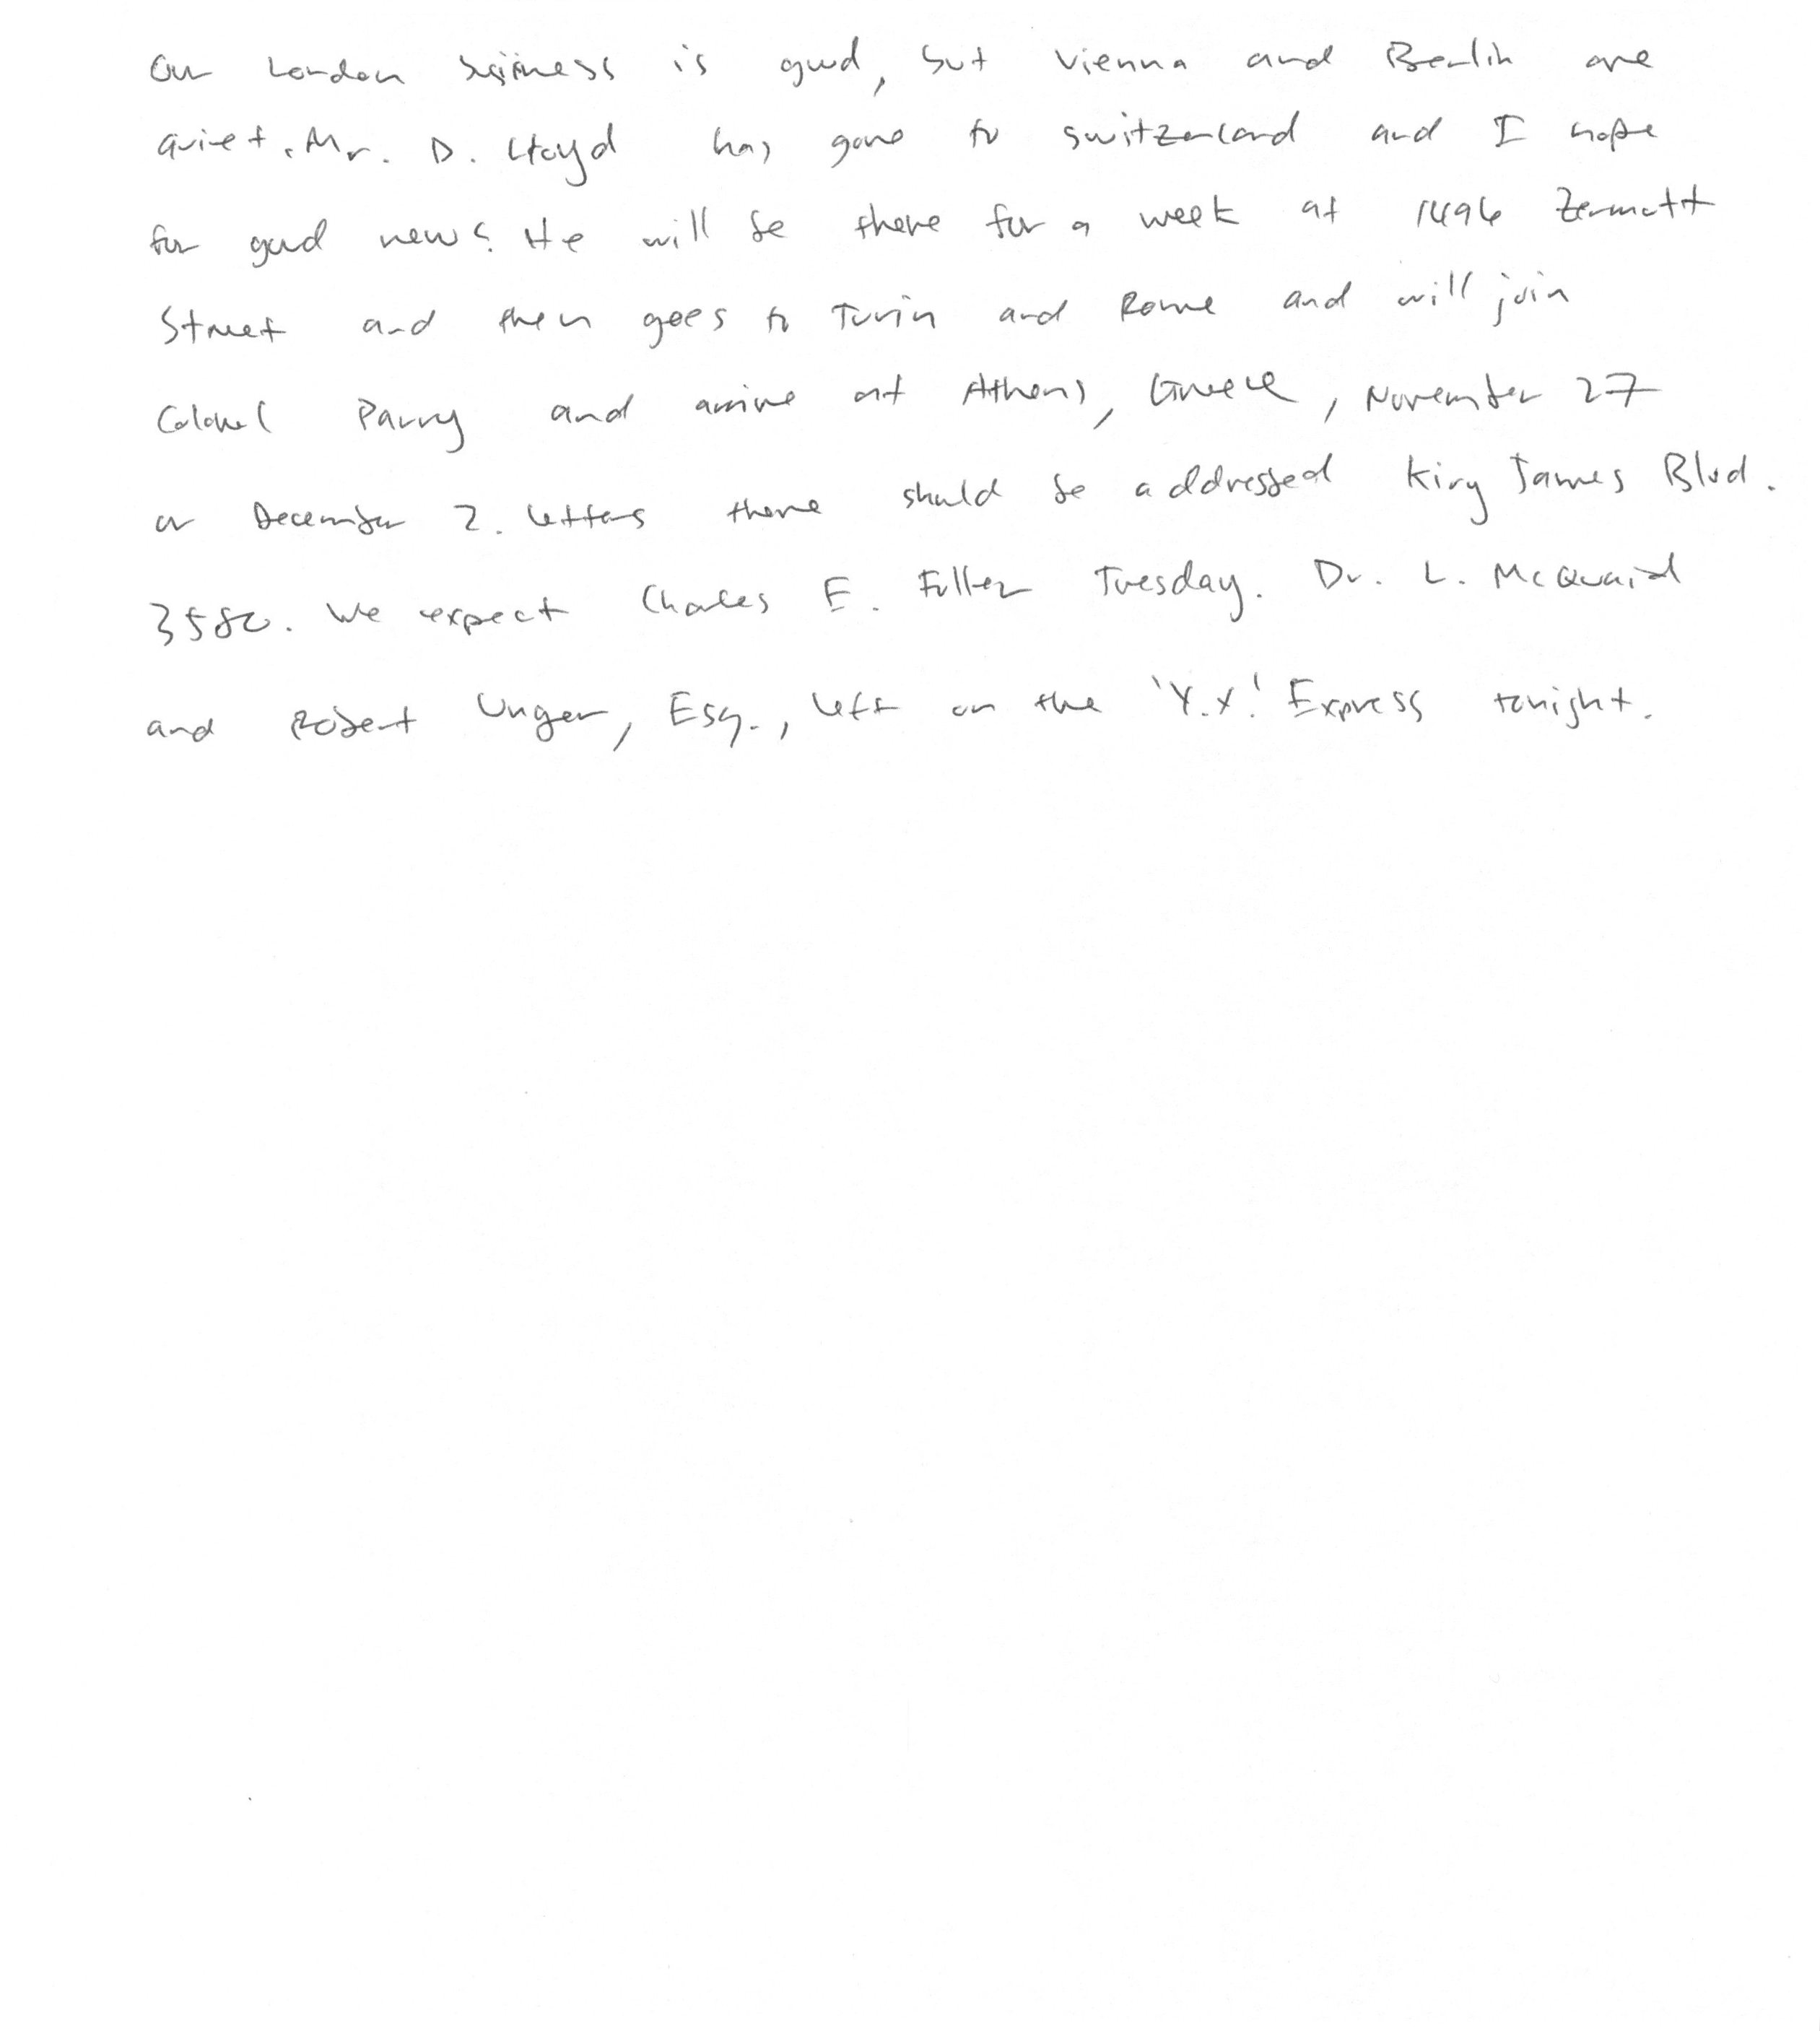 Our London business is good, but Vienna and Berlin are
quiet. Mr. D. Lloyd has gone to Switzerland and I hope
for good news. He will be there for a week at 1496 Zermott
Street and then goes to Turin and Rome and will join
Colonel Parry and arrive at Athens, Greece, November 27
or December 2. Letters there should be addressed King James Blvd.
3580. We expect Charles E. Fuller Tuesday. Dr. L. McQuaid
and Robert Unger, Esq., left on the 'Y.X.' Express tonight.